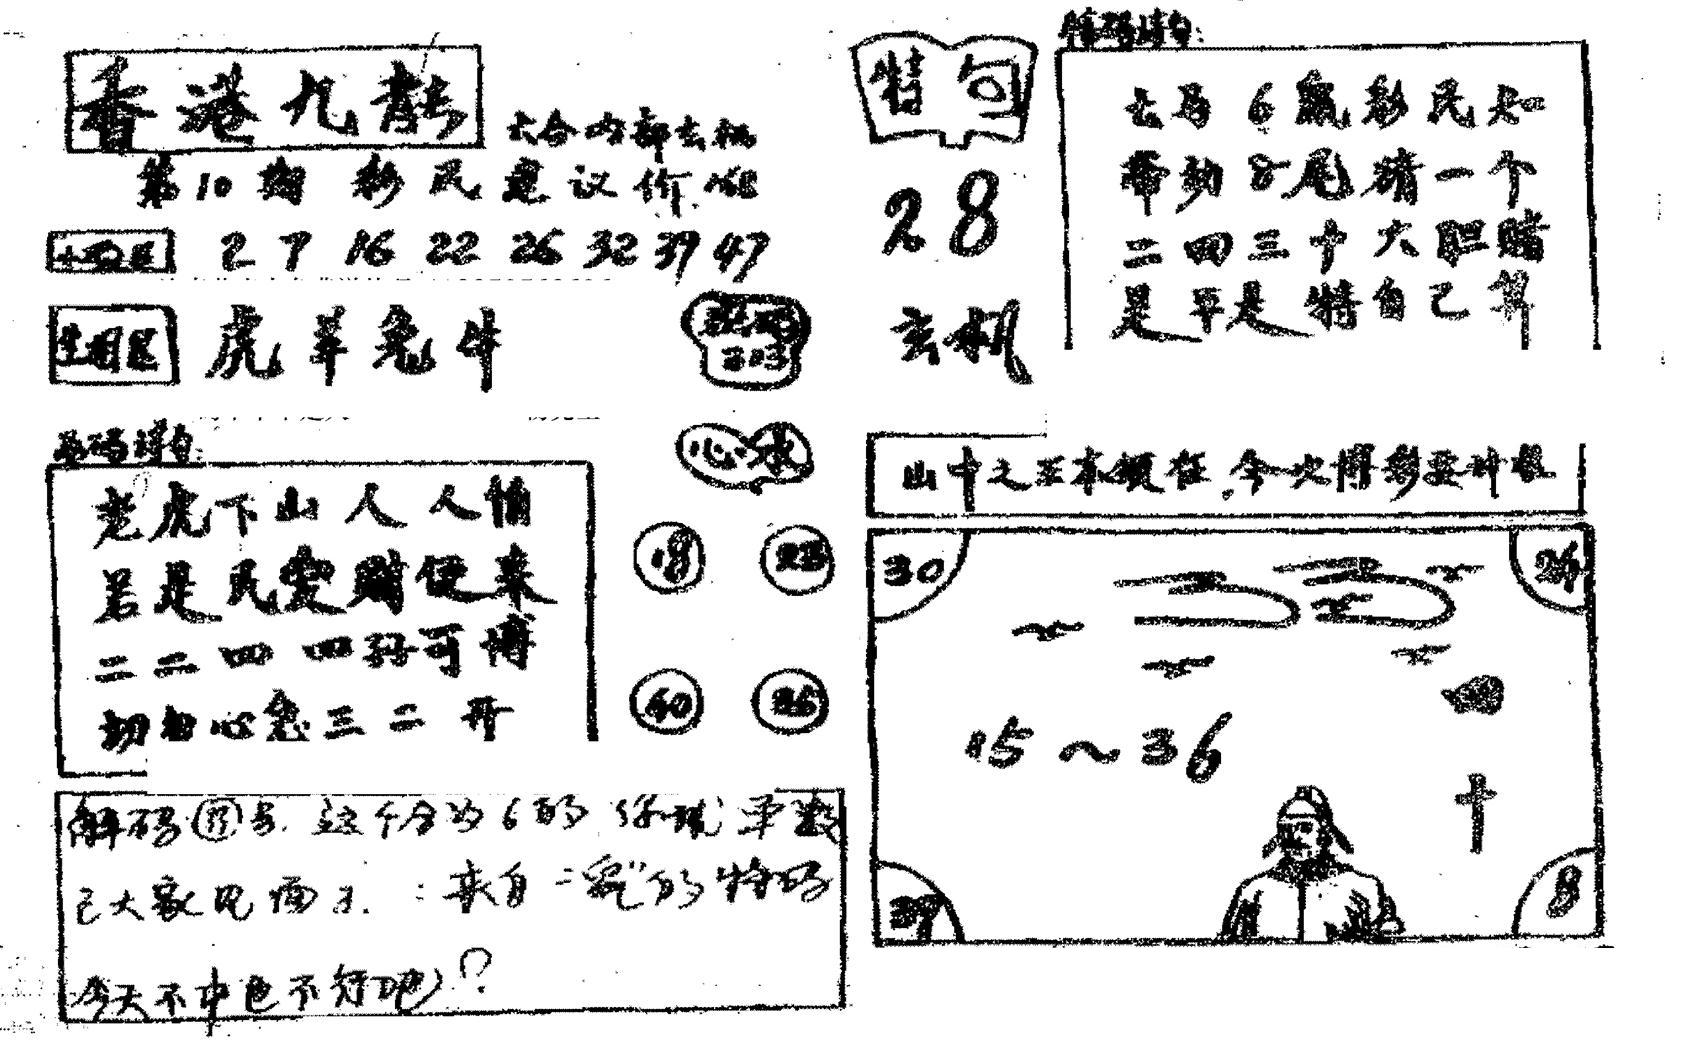 香港九龍
六合内部玄机
第10期 彩民建议价
2 7 16 22 26 32 39 47
生肖区 虎羊兔牛
心水
18 23
40 36
码诗句:
老虎下山人人怕
若是民变财便来
二二四四码可博
切勿心急三二开
解码 号. 这个分为6的 单数
已大家见面了. : 来自 的特码
今天不中也不行吧?
特句
28
玄机
特码诗句:
去马6赢彩民知
带动8尾猜一个
二四三十大胆赌
是平是特自己算
山中之王本领在,今次博彩要神机
30 24
15~36
十
39 8